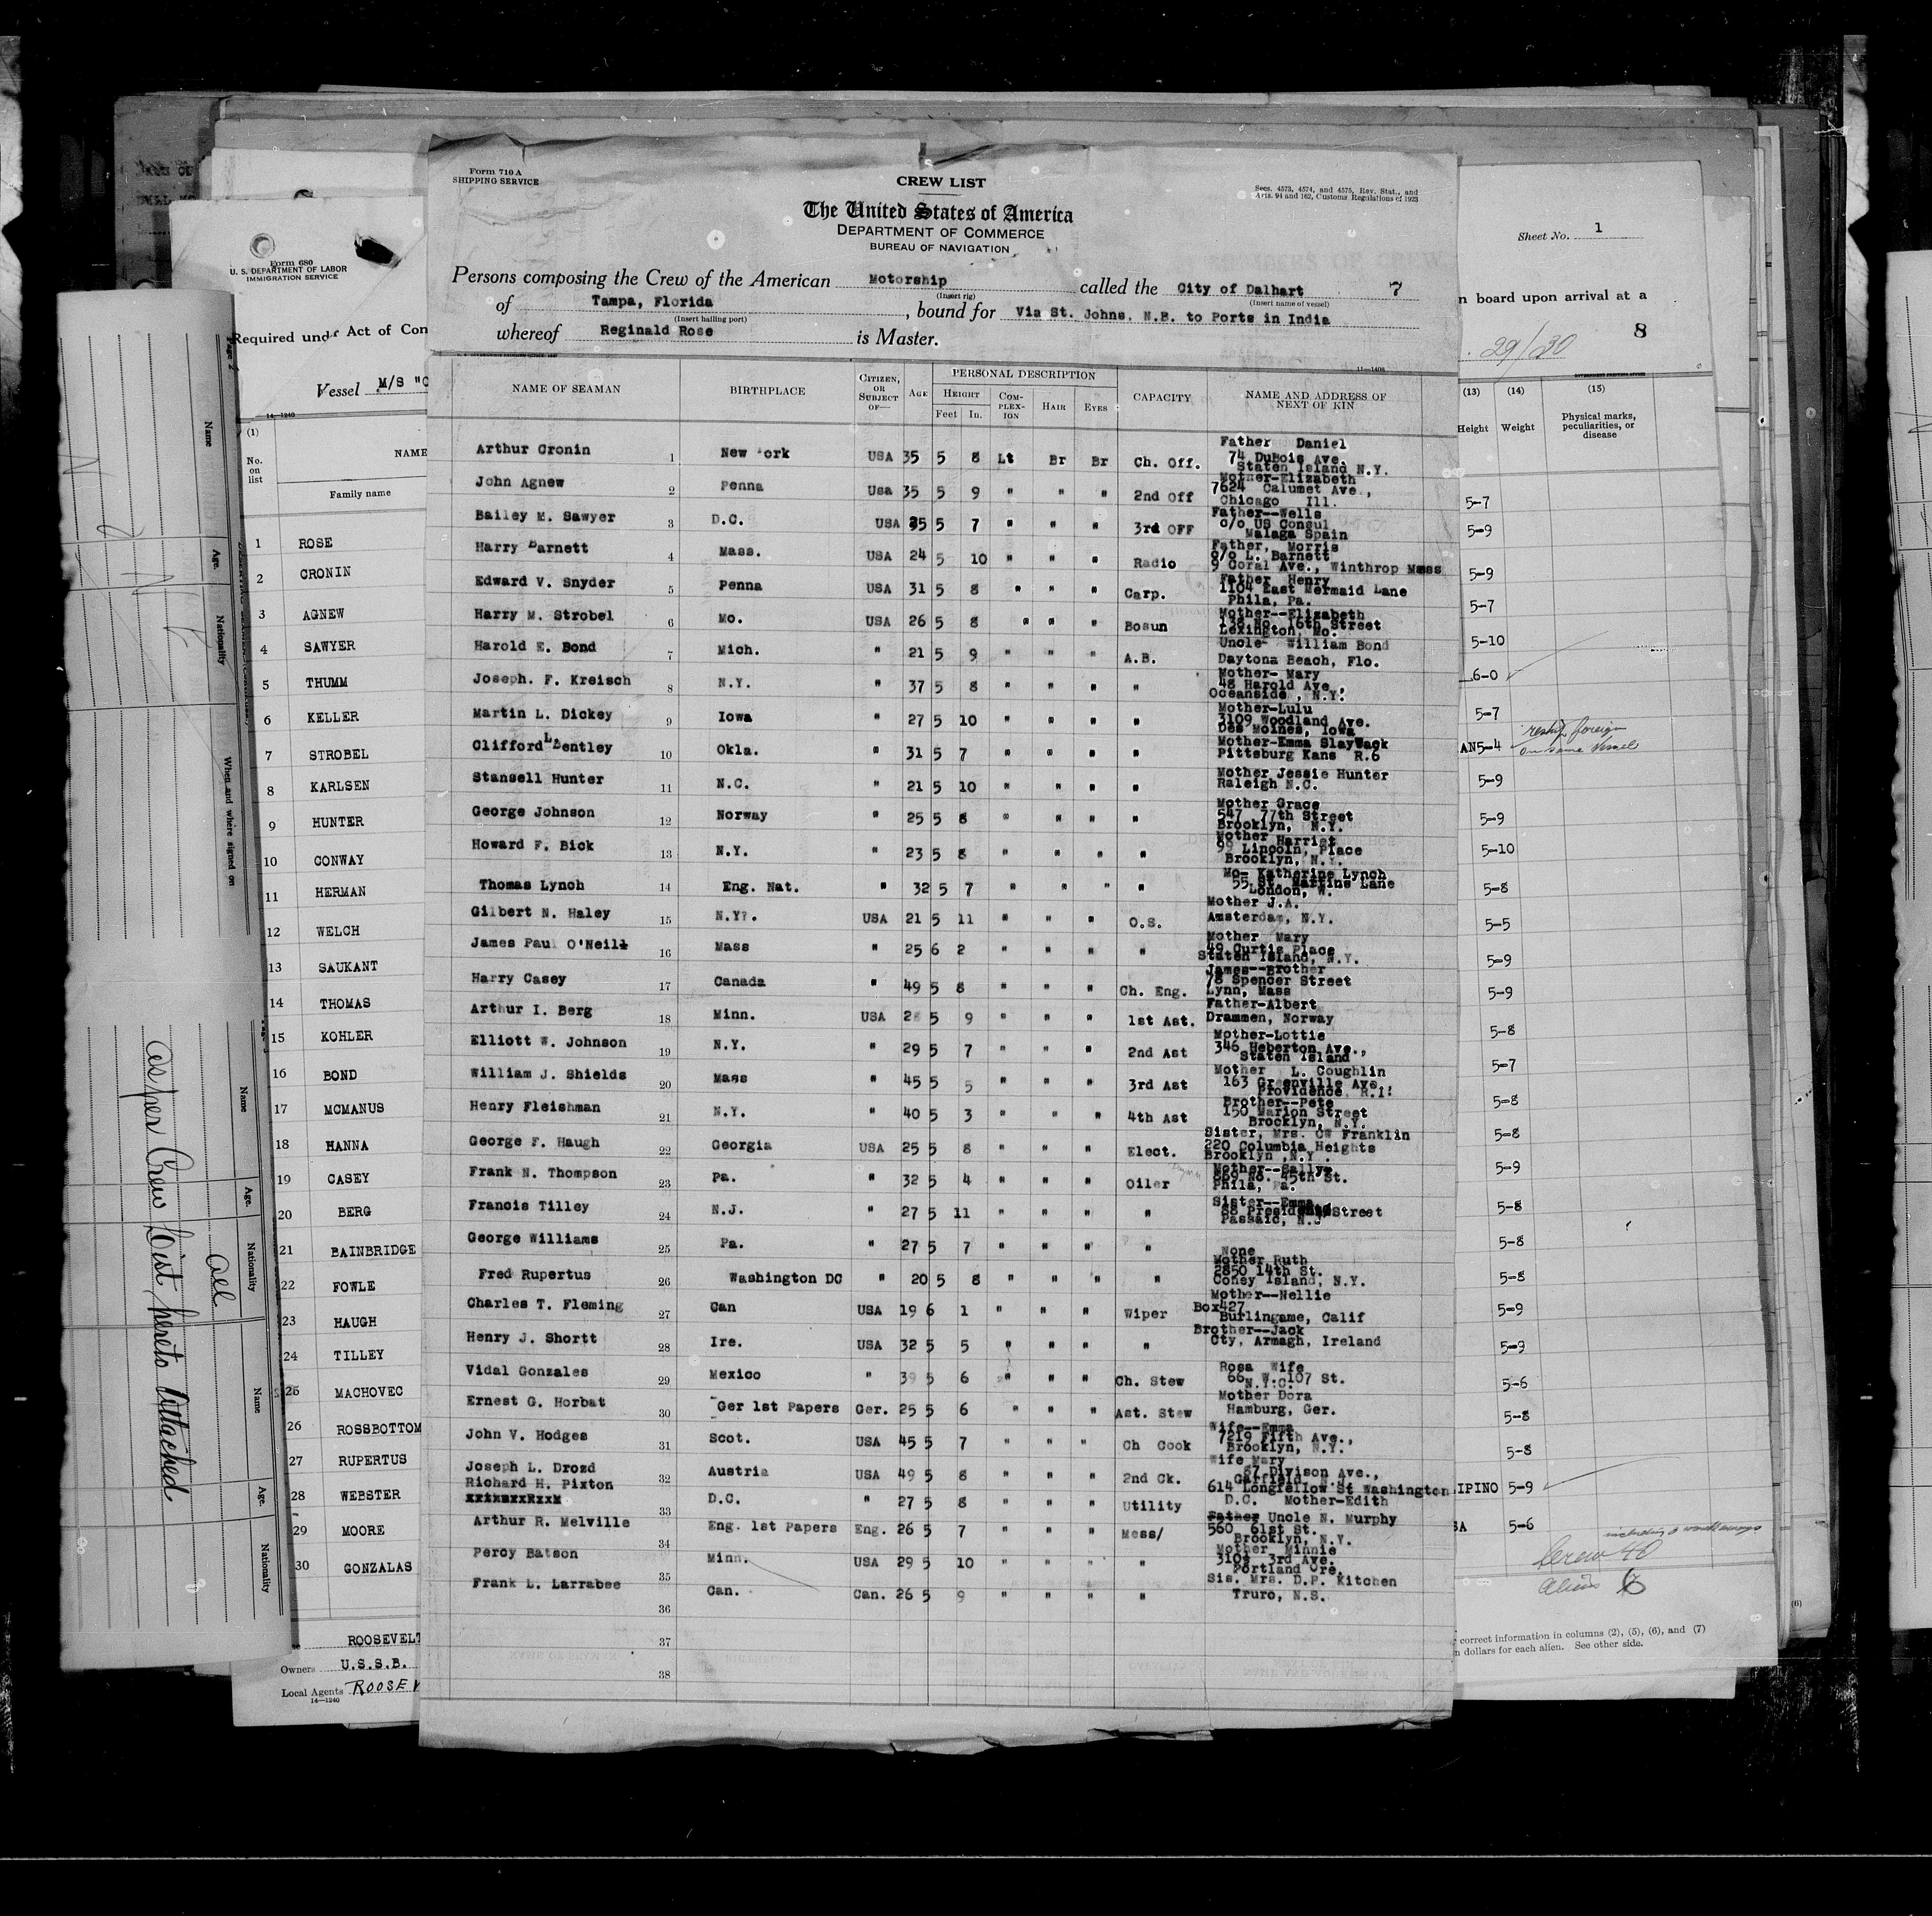 Form 710 A
SHIPPING SERVICE
CREW LIST
Secs. 4573, 4574, and 4575, Rev. Stat., and
Arts. 94 and 162, Customs Regulations of 1923
The United States of America
DEPARTMENT OF COMMERCE
BUREAU OF NAVIGATION
Persons composing the Crew of the American Motorship called the City of Dalhart 7
(Insert rig) (Insert name of vessel)
of Tampa, Florida, bound for Via St. Johns, N.B. to Ports in India
(Insert hailing port)
whereof Reginald Rose is Master.
11—1408
NAME OF SEAMAN BIRTHPLACE CITIZEN, OR SUBJECT OF— AGE PERSONAL DESCRIPTION CAPACITY NAME AND ADDRESS OF NEXT OF KIN
HEIGHT COMPLEXION HAIR EYES
Feet In.
Arthur Cronin 1 New ork USA 35 5 8 Lt Br Br Ch. Off. Father Daniel
74 DuBois Ave.
Staten Island N.Y.
John Agnew 2 Penna Usa 35 5 9 " " " 2nd Off Mother-Elizabeth
7624 Calumet Ave.,
Chicago Ill.
Bailey M. Sawyer 3 D.C. USA 35 5 7 " " " 3rd OFF Father--Wells
c/o US Consul
Malaga Spain
Harry Barnett 4 Mass. USA 24 5 10 " " " Radio Father, Morris
c/o L. Barnett
9 Coral Ave., Winthrop Mass
Edward V. Snyder 5 Penna USA 31 5 8 " " " Carp. Father Henry
1104 East Mermaid Lane
Phila, Pa.
Harry M. Strobel 6 Mo. USA 26 5 8 " " " Bosun Mother--Elizabeth
138 No. 16th Street
Lexington, Mo.
Harold E. Bond 7 Mich. " 21 5 9 " " " A.B. Uncle- William Bond
Daytona Beach, Flo.
Joseph. F. Kreisch 8 N.Y. " 37 5 8 " " " " Mother- Mary
48 Harold Ave.,
Oceanside, N.Y.
Martin L. Dickey 9 Iowa " 27 5 10 " " " " Mother-Lulu
3109 Woodland Ave.
Des Moines, Iowa
Clifford L Bentley 10 Okla. " 31 5 7 " " " " Mother-Emma Slayback
Pittsburg Kans R.6
Stansell Hunter 11 N.C. " 21 5 10 " " " " Mother Jessie Hunter
Raleigh N.C.
George Johnson 12 Norway " 25 5 8 " " " " Mother Grace
547 77th Street
Brooklyn, N.Y.
Howard F. Bick 13 N.Y. " 23 5 8 " " " " Mother Harriet
Lincoln, Place
Brooklyn, N.Y.
Thomas Lynch 14 Eng. Nat. " 32 5 7 " " " " Mo- Katherine Lynch
55 St. Martins Lane
London, W.
Gilbert N. Haley 15 N.Y. USA 21 5 11 " " " O.S. Mother J.A.
Amsterdam, N.Y.
James Paul O'Neill 16 Mass " 25 6 2 " " " " Mother Mary
49 Curtis Place
Staten Island, N.Y.
Harry Casey 17 Canada " 49 5 8 " " " Ch. Eng. James--Brother
78 Spencer Street
Lynn, Mass
Arthur I. Berg 18 Minn. USA 5 9 " " " 1st Ast. Father-Albert
Drammen, Norway
Elliott W. Johnson 19 N.Y. " 29 5 7 " " " 2nd Ast Mother-Lottie
346 Heberton Ave.,
Staten Island
William J. Shields 20 Mass " 45 5 5 " " " 3rd Ast Mother L. Coughlin
163 Greenville Ave.,
Providence, R.I.
Henry Fleishman 21 N.Y. " 40 5 3 " " " 4th Ast Brother--Pete
150 Marion Street
Brooklyn, N.Y.
George F. Haugh 22 Georgia USA 25 5 8 " " " Elect. Sister, Mrs. CW Franklin
220 Columbia Heights
Brooklyn, N.Y.
Frank N. Thompson 23 Pa. " 32 5 4 " " " Oiler Mother--Sally
No. 45th St.
Phila, Pa.
Francis Tilley 24 N.J. " 27 5 11 " " " " Sister--Emma
Street
Passaic, N.J
George Williams 25 Pa. " 27 5 7 " " " " None
Fred Rupertus 26 Washington DC " 20 5 8 " " " " Mother Ruth
2850 14th St.
Coney Island, N.Y.
Charles T. Fleming 27 Can USA 19 6 1 " " " Wiper Mother--Nellie
Box427
Burlingame, Calif
Henry J. Shortt 28 Ire. USA 32 5 5 " " " " Brother--Jack
Cty, Armagh, Ireland
Vidal Gonzales 29 Mexico " 39 5 6 " " " Ch. Stew Rosa Wife
66 W. 107 St.
N.Y.C.
Ernest G. Horbat 30 Ger 1st Papers Ger. 25 5 6 " " " Ast. Stew Mother Dora
Hamburg, Ger.
John V. Hodges 31 Scot. USA 45 5 7 " " " Ch Cook Wife--Emma
7219 Fifth Ave.,
Brooklyn, N.Y.
Joseph L. Drozd 32 Austria USA 49 5 8 " " " 2nd Ck. Wife Mary
67 Divison Ave.,
Garfield, N.J.
Richard H. Pixton 33 D.C. " 27 5 8 " " " Utility 614 Longfellow St Washington
D.C. Mother-Edith
Arthur R. Melville 34 Eng. 1st Papers Eng. 26 5 7 " " " Mess/ Father Uncle N. Murphy
560 61st St.
Brooklyn, N.Y.
Percy Batson 35 Minn. USA 29 5 10 " " " " Mother Minnie
3rd Ave.
Portland Ore.
Frank L. Larrabee 36 Can. Can. 26 5 9 " " " " Sis. Mrs. D.P. Kitchen
Truro, N.S.
37
38
Form 680
U. S. DEPARTMENT OF LABOR
IMMIGRATION SERVICE
Required under Act of Con
Vessel M/S "C
14—1240
(1)
No. on list
NAME
Family name
1 ROSE
2 CRONIN
3 AGNEW
4 SAWYER
5 THUMM
6 KELLER
7 STROBEL
8 KARLSEN
9 HUNTER
10 CONWAY
11 HERMAN
12 WELCH
13 SAUKANT
14 THOMAS
15 KOHLER
16 BOND
17 MCMANUS
18 HANNA
19 CASEY
20 BERG
21 BAINBRIDGE
22 FOWLE
23 HAUGH
24 TILLEY
26 MACHOVEC
26 ROSSBOTTOM
27 RUPERTUS
28 WEBSTER
29 MOORE
30 GONZALAS
ROOSEVELT
Owners U.S.S.B.
Local Agents ROOSEV
14—1240
Sheet No. 1
n board upon arrival at a
29/30 8
(13) (14) (15)
Height Weight Physical marks, peculiarities, or disease
5-7
5-9
5-9
5-7
5-10
6-0
5-7
AN5-4 reship foreign
on same vessel
5-9
5-9
5-10
5-8
5-5
5-9
5-9
5-8
5-7
5-8
5-8
5-9
5-8
5-8
5-8
5-9
5-9
5-6
5-8
5-8
IPINO 5-9
SA 5-6
Crew 40
aliens 6
correct information in columns (2), (5), (6), and (7)
n dollars for each alien. See other side.
(6)
Page 2
Name
Age.
Nationality
When and where signed on
Name
Age.
Nationality
Name
Age.
Nationality
As per Crew List hereto Attached
All